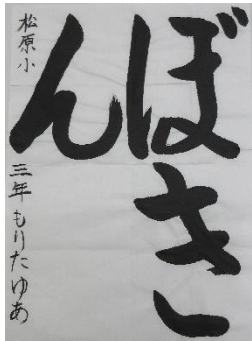 ぼきん
松原小
三年もりたゆあ